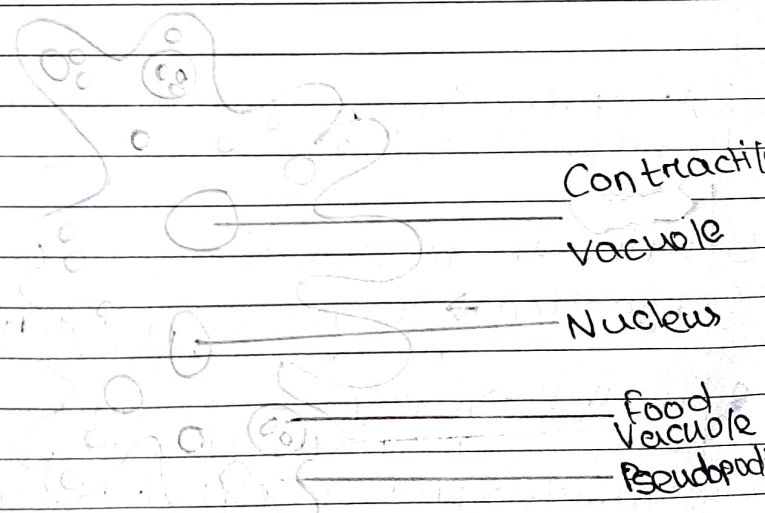 Contractil
vacuole
Nucleus
Food
Vacuole
Pseudopodi